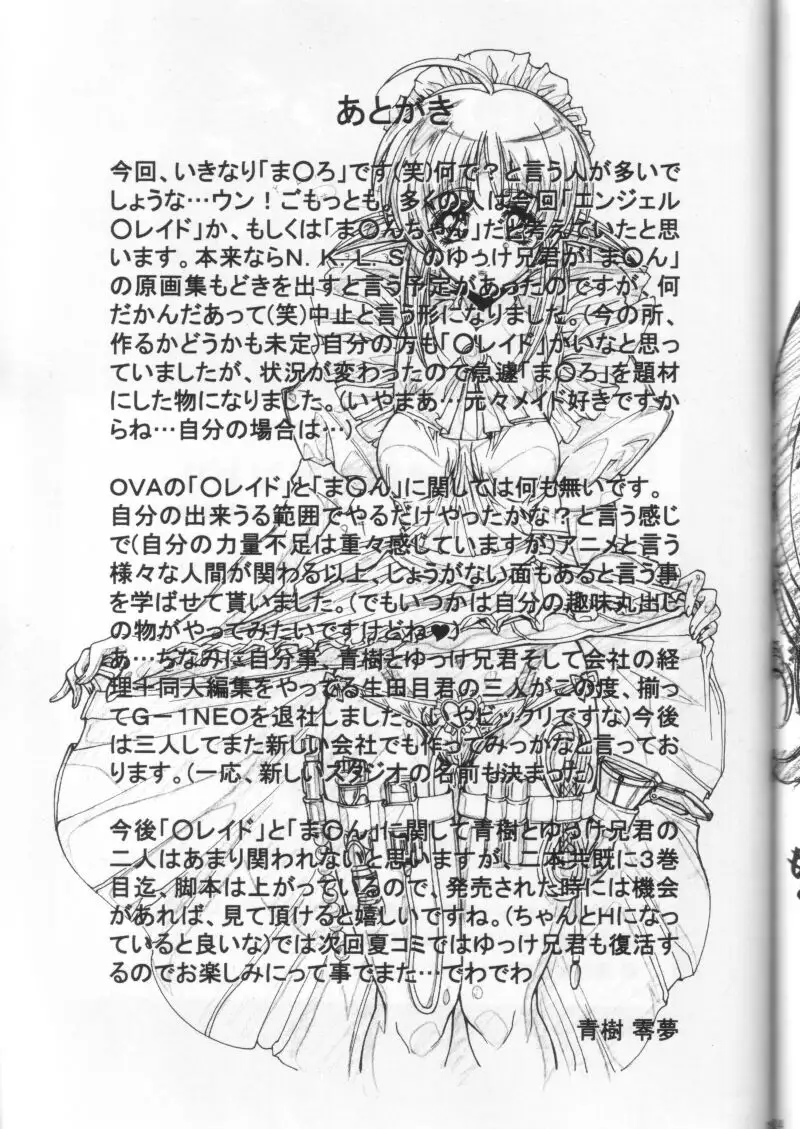 あとがき
今回、いきなり「ま〇ろ」です(笑)何で？と言う人が多いで
しょうな…ウン！ごもっとも。多くの人は今回「エンジェル
〇レイド」か、もしくは「ま〇んちゃん」だと考えていたと思
います。本来ならN．K．L．S．のゆっけ兄君が「ま〇ん」
の原画集もどきを出すと言う予定があったのですが、何
だかんだあって(笑)中止と言う形になりました。(今の所、
作るかどうかも未定)自分の方も「〇レイド」かいなと思っ
ていましたが、状況が変わったので急遽「ま〇ろ」を題材
にした物になりました。(いやまあ…元々メイド好きですか
らね…自分の場合は…)
OVAの「〇レイド」と「ま〇ん」に関しては何も無いです。
自分の出来うる範囲でやるだけやったかな？と言う感じ
で(自分の力量不足は重々感じていますが)アニメと言う
様々な人間が関わる以上、しょうがない面もあると言う事
を学ばせて貰いました。(でもいつかは自分の趣味丸出し
の物がやってみたいですけどね♥)
あ…ちなみに自分事、青樹とゆっけ兄君そして会社の経
理＋同人編集をやってる生田目君の三人がこの度、揃っ
てG－1NEOを退社しました。(いやビックリですな)今後
は三人してまた新しい会社でも作ってみっかなと言ってお
ります。(一応、新しいスタジオの名前も決まった)
今後「〇レイド」と「ま〇ん」に関して青樹とゆっけ兄君の
二人はあまり関われないと思いますが、二本共既に３巻
目迄、脚本は上がっているので、発売された時には機会
があれば、見て頂けると嬉しいですね。(ちゃんとHになっ
ていると良いな)では次回夏コミではゆっけ兄君も復活す
るのでお楽しみにって事でまた…でわでわ
青樹 零夢